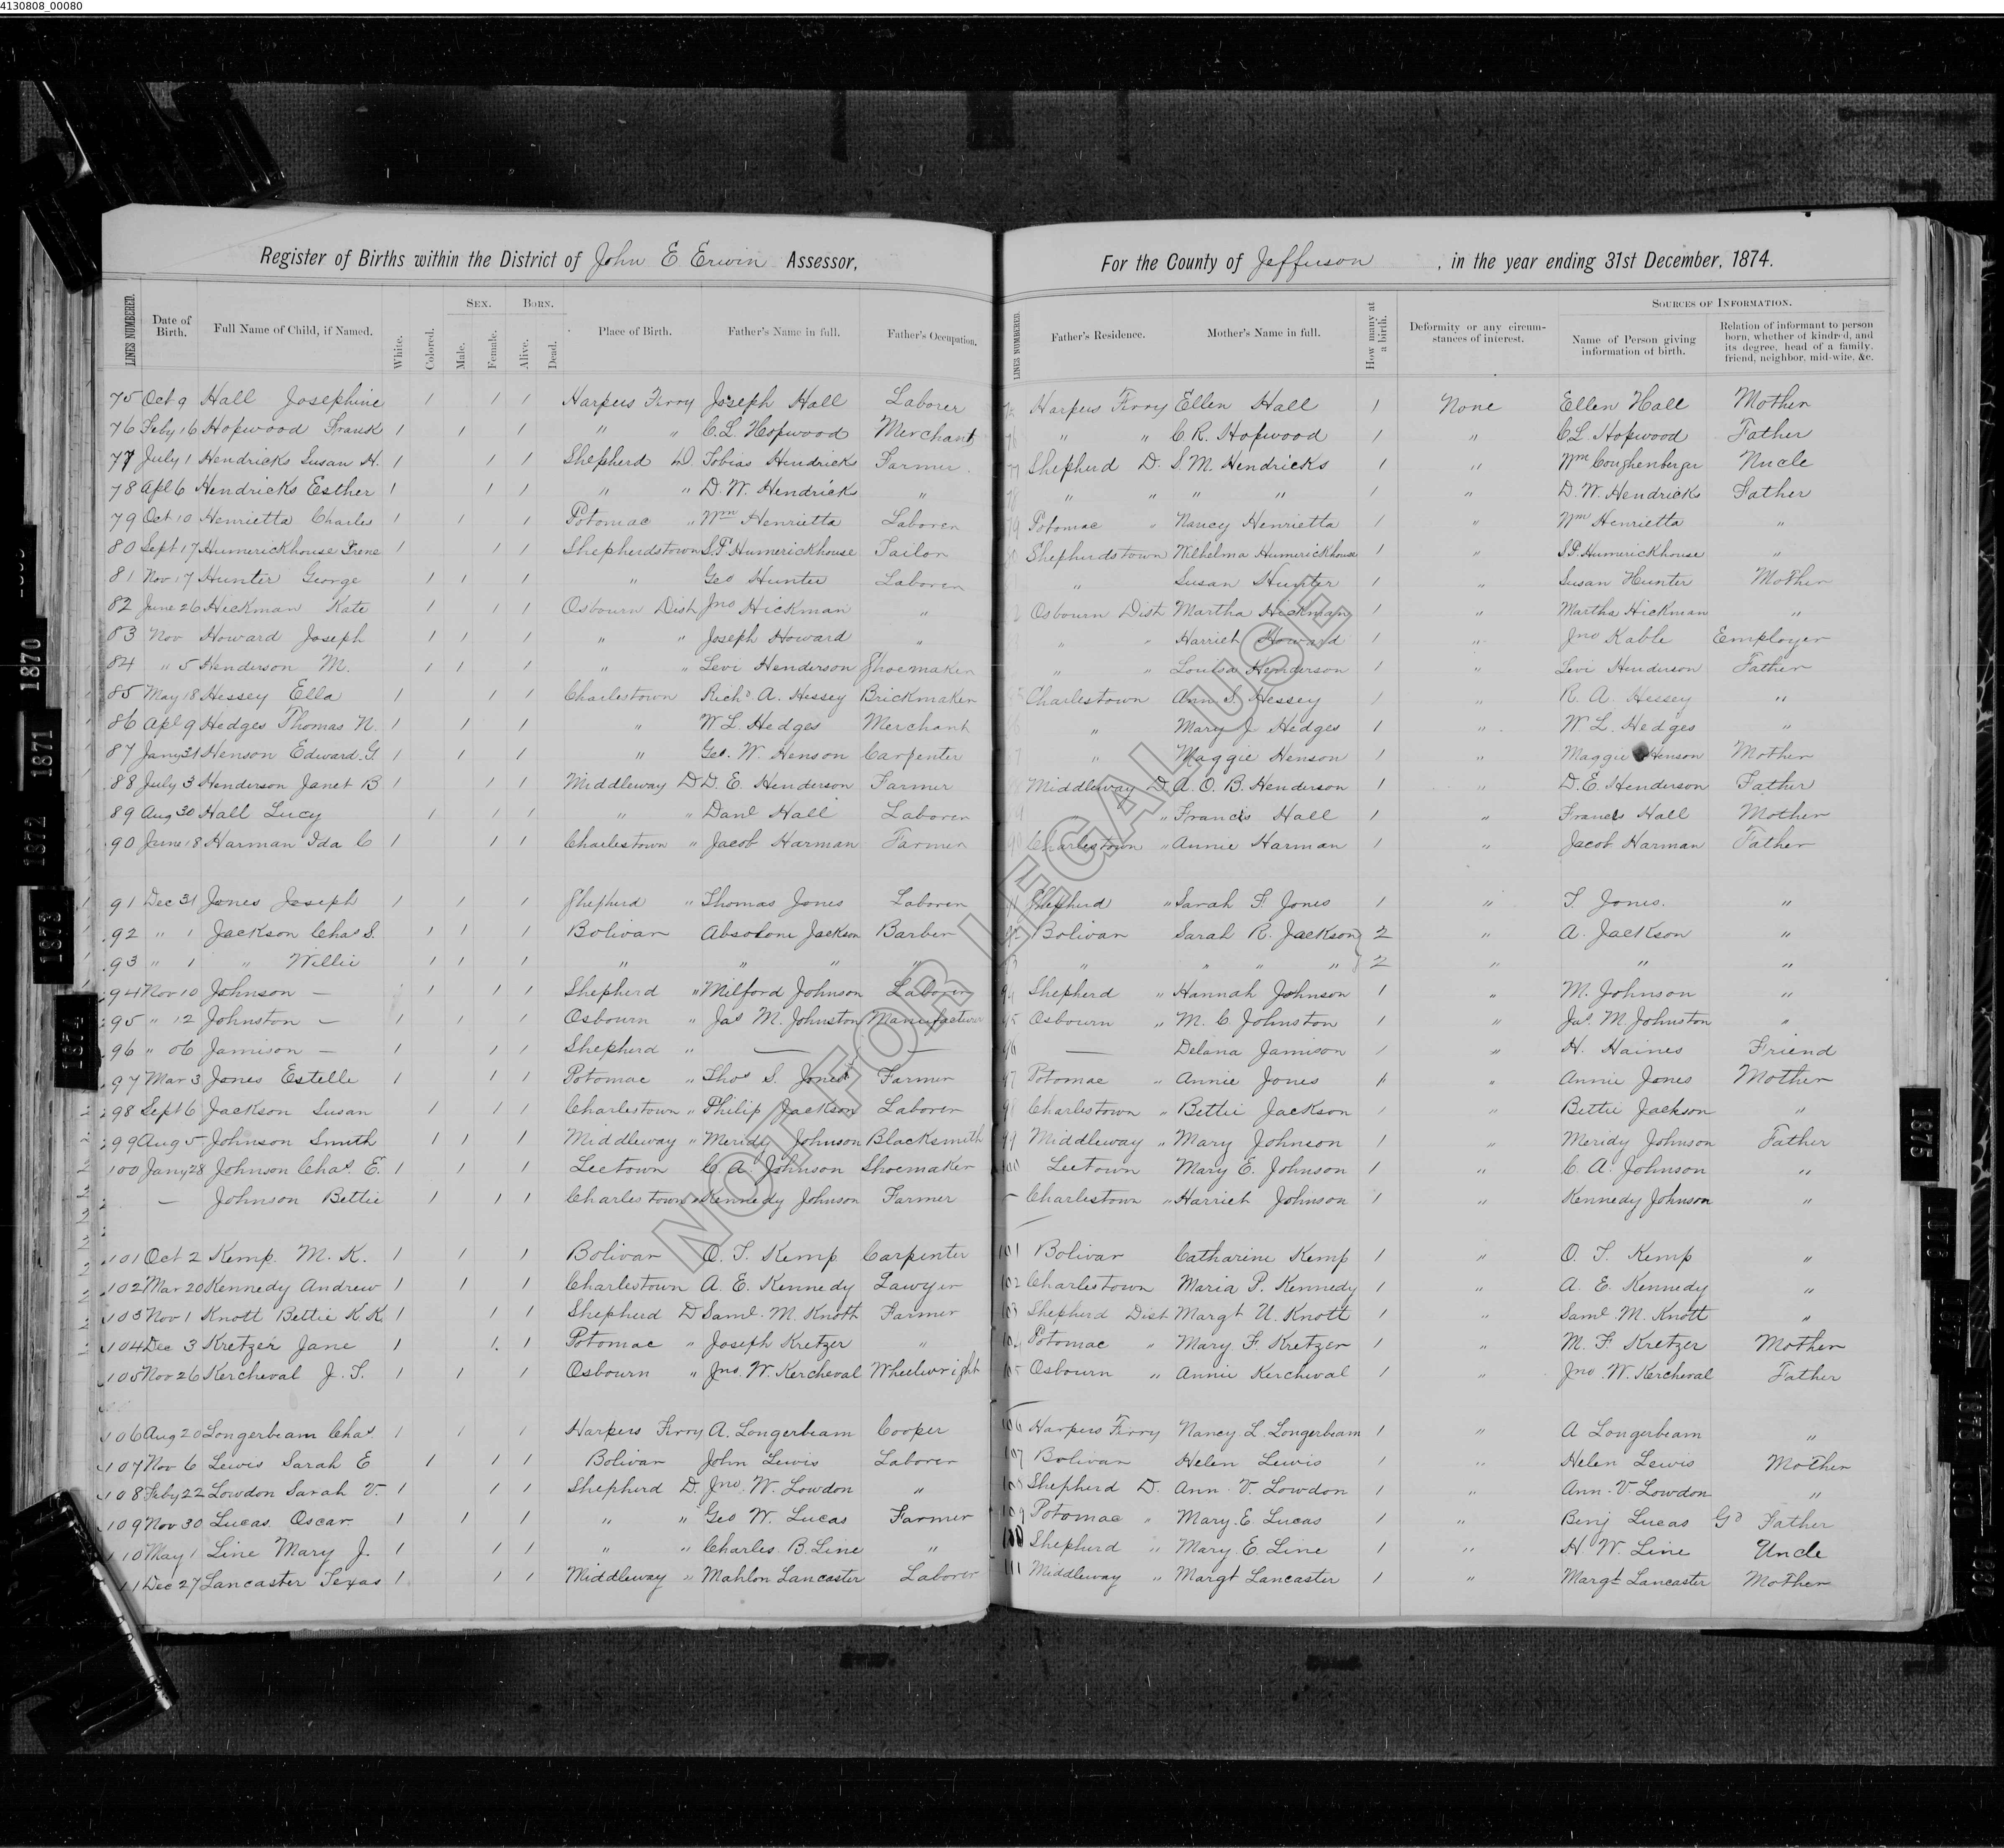 4130808_00080
Register of Births within the District of John E Erwin Assessor,
For the County of Jefferson, in the year ending 31st December, 1874.
LINES NUMBERED. Date of Birth. Full Name of Child, if Named. White. Colored. SEX. Male. Female. BORN. Alive. Dead. Place of Birth. Father's Name in full. Father's Occupation.
LINES NUMBERED. Father's Residence. Mother's Name in full. How many at a birth. Deformity or any circumstances of interest. SOURCES OF INFORMATION. Name of Person giving information of birth. Relation of informant to person born, whether of kindred, and its degree, head of a family, friend, neighbor, mid-wife, &c.
75 Oct 9 Hall Josephine 1 1 1 Harpers Ferry Joseph Hall Laborer Harpers Ferry Ellen Hall 1 None Ellen Hall Mother
76 Feby 16 Hopwood Frank 1 1 1 " " C. L. Hopwood Merchant " " C. R. Hopwood 1 " C L Hopwood Father
77 July 1 Hendricks Susan H. 1 1 1 Shepherd D. Tobias Hendricks Farmer. 77 Shepherd D. S. M. Hendricks 1 " Wm Coughenberger Nucle
78 Apl 6 Hendricks Esther 1 1 1 " " D. W. Hendricks " " " " " 1 " D. W. Hendricks Father
79 Oct 10 Henrietta Charles 1 1 1 Potomac " Wm Henrietta Laborer 79 Potomac " Nancy Henrietta 1 " Wm Henrietta "
80 Sept 17 Humerickhouse Irene 1 1 1 Shepherdstown S. P. Humerickhouse Tailor Shepherdstown Wilhelma Humerickhouse 1 " S. P. Humerickhouse "
81 Nov 17 Hunter George 1 1 1 " Geo Hunter Laborer " Susan Hunter 1 " Susan Hunter Mother
82 June 26 Hickman Kate 1 1 1 Osbourn Dist Jno Hickman " Osbourn Dist Martha Hickman 1 " Martha Hickman "
83 Nov Howard Joseph 1 1 1 " " Joseph Howard " " " Harriet Howard 1 " Jno Kable Employer
84 " 5 Henderson M. 1 1 1 " " Levi Henderson Shoemaker " " Louisa Henderson 1 " Levi Henderson Father
85 May 18 Hessey Ella 1 1 1 Charlestown Richd A. Hessey Brickmaker Charlestown Ann S. Hessey 1 " R. A. Hessey "
86 Apl 9 Hedges Thomas N. 1 1 1 " W L. Hedges Merchant " Mary J Hedges 1 " W L. Hedges "
87 Jany 31 Henson Edward. G. 1 1 1 " Geo. W. Henson Carpenter " Maggie Henson 1 " Maggie Henson Mother
88 July 3 Henderson Janet B 1 1 1 Middleway D D. E. Henderson Farmer Middleway D A. O. B. Henderson 1 " D. E. Henderson Father
89 Aug 30 Hall Lucy 1 1 1 " " Danl Hall Laborer " Francis Hall 1 " Francis Hall Mother
90 June 18 Harman Ida C 1 1 1 Charlestown " Jacob Harman Farmer 90 Charlestown " Annie Harman 1 " Jacob Harman Father
91 Dec 31 Jones Joseph 1 1 1 Shepherd " Thomas Jones Laborer Shepherd " Sarah F. Jones 1 " T. Jones. "
92 " 1 Jackson Chas S. 1 1 1 Bolivar Absolone Jackson Barber Bolivar Sarah R. Jackson 2 " A. Jackson "
93 " 1 " Willie 1 1 1 " " " " " " " " 2 " " "
94 Nov 10 Johnson — 1 1 1 Shepherd " Milford Johnson Laborer Shepherd " Hannah Johnson 1 " M. Johnson "
95 " 12 Johnston — 1 1 1 Osbourn " Jas M. Johnston Manufacturer 95 Osbourn " M. C. Johnston 1 " Jas. M. Johnston "
96 " 06 Jamison — 1 1 1 Shepherd " — — 96 — Delana Jamison 1 " H. Haines Friend
97 Mar 3 Jones Estelle 1 1 1 Potomac " Thos S. Jones Farmer 97 Potomac " Annie Jones 1 " Annie Jones Mother
98 Sept 6 Jackson Susan 1 1 1 Charlestown " Philip Jackson Laborer 98 Charlestown " Bettie Jackson 1 " Bettie Jackson "
99 Aug 5 Johnson Smith 1 1 1 Middleway " Meridy Johnson Blacksmith 99 Middleway " Mary Johnson 1 " Meridy Johnson Father
100 Jany 28 Johnson Chas. E. 1 1 1 Leetown C. A. Johnson Shoemaker 100 Leetown Mary E. Johnson 1 " C. A. Johnson "
— Johnson Bettie 1 1 1 Charlestown " Kennedy Johnson Farmer — Charlestown " Harriet Johnson 1 " Kennedy Johnson "
101 Oct 2 Kemp. M. K. 1 1 1 Bolivar O. T. Kemp Carpenter 101 Bolivar Catharine Kemp 1 " O. T. Kemp "
102 Mar 20 Kennedy Andrew 1 1 1 Charlestown A. E. Kennedy Lawyer 102 Charlestown Maria P. Kennedy 1 " A. E. Kennedy "
103 Nov 1 Knott Bettie K. K. 1 1 1 Shepherd D Saml. M. Knott Farmer 103 Shepherd Dist Margt U. Knott 1 " Saml. M. Knott "
104 Dec 3 Kretzer Jane 1 1 1 Potomac " Joseph Kretzer " 104 Potomac " Mary F. Kretzer 1 " M. F. Kretzer Mother
105 Nov 26 Kercheval J. T. 1 1 1 Osbourn " Jno. W. Kercheval Wheelwright 105 Osbourn " Annie Kercheval 1 " Jno. W. Kercheval Father
106 Aug 20 Longerbeam Chas. 1 1 1 Harpers Ferry A. Longerbeam Cooper 106 Harpers Ferry Nancy. L. Longerbeam 1 " A Longerbeam "
107 Nov 6 Lewis Sarah E 1 1 1 Bolivar John Lewis Laborer 107 Bolivar Helen Lewis 1 " Helen Lewis Mother
108 Feby 22 Lowdon Sarah V. 1 1 1 Shepherd D. Jno. W. Lowdon " 108 Shepherd D. Ann. V. Lowdon 1 " Ann. V. Lowdon "
109 Nov 30 Lucas. Oscar. 1 1 1 " " Geo W. Lucas Farmer 109 Potomac " Mary. E Lucas 1 " Benj Lucas Gd Father
110 May 1 Line Mary J. 1 1 1 " " Charles. B. Line " Shepherd " Mary. E. Line 1 " H. W. Line Uncle
11 Dec 27 Lancaster Texas 1 1 1 Middleway " Mahlon Lancaster Laborer 111 Middleway " Margt Lancaster 1 " Margt Lancaster Mother
NOT FOR LEGAL USE
1870
1871
1872
1873
1874
1875